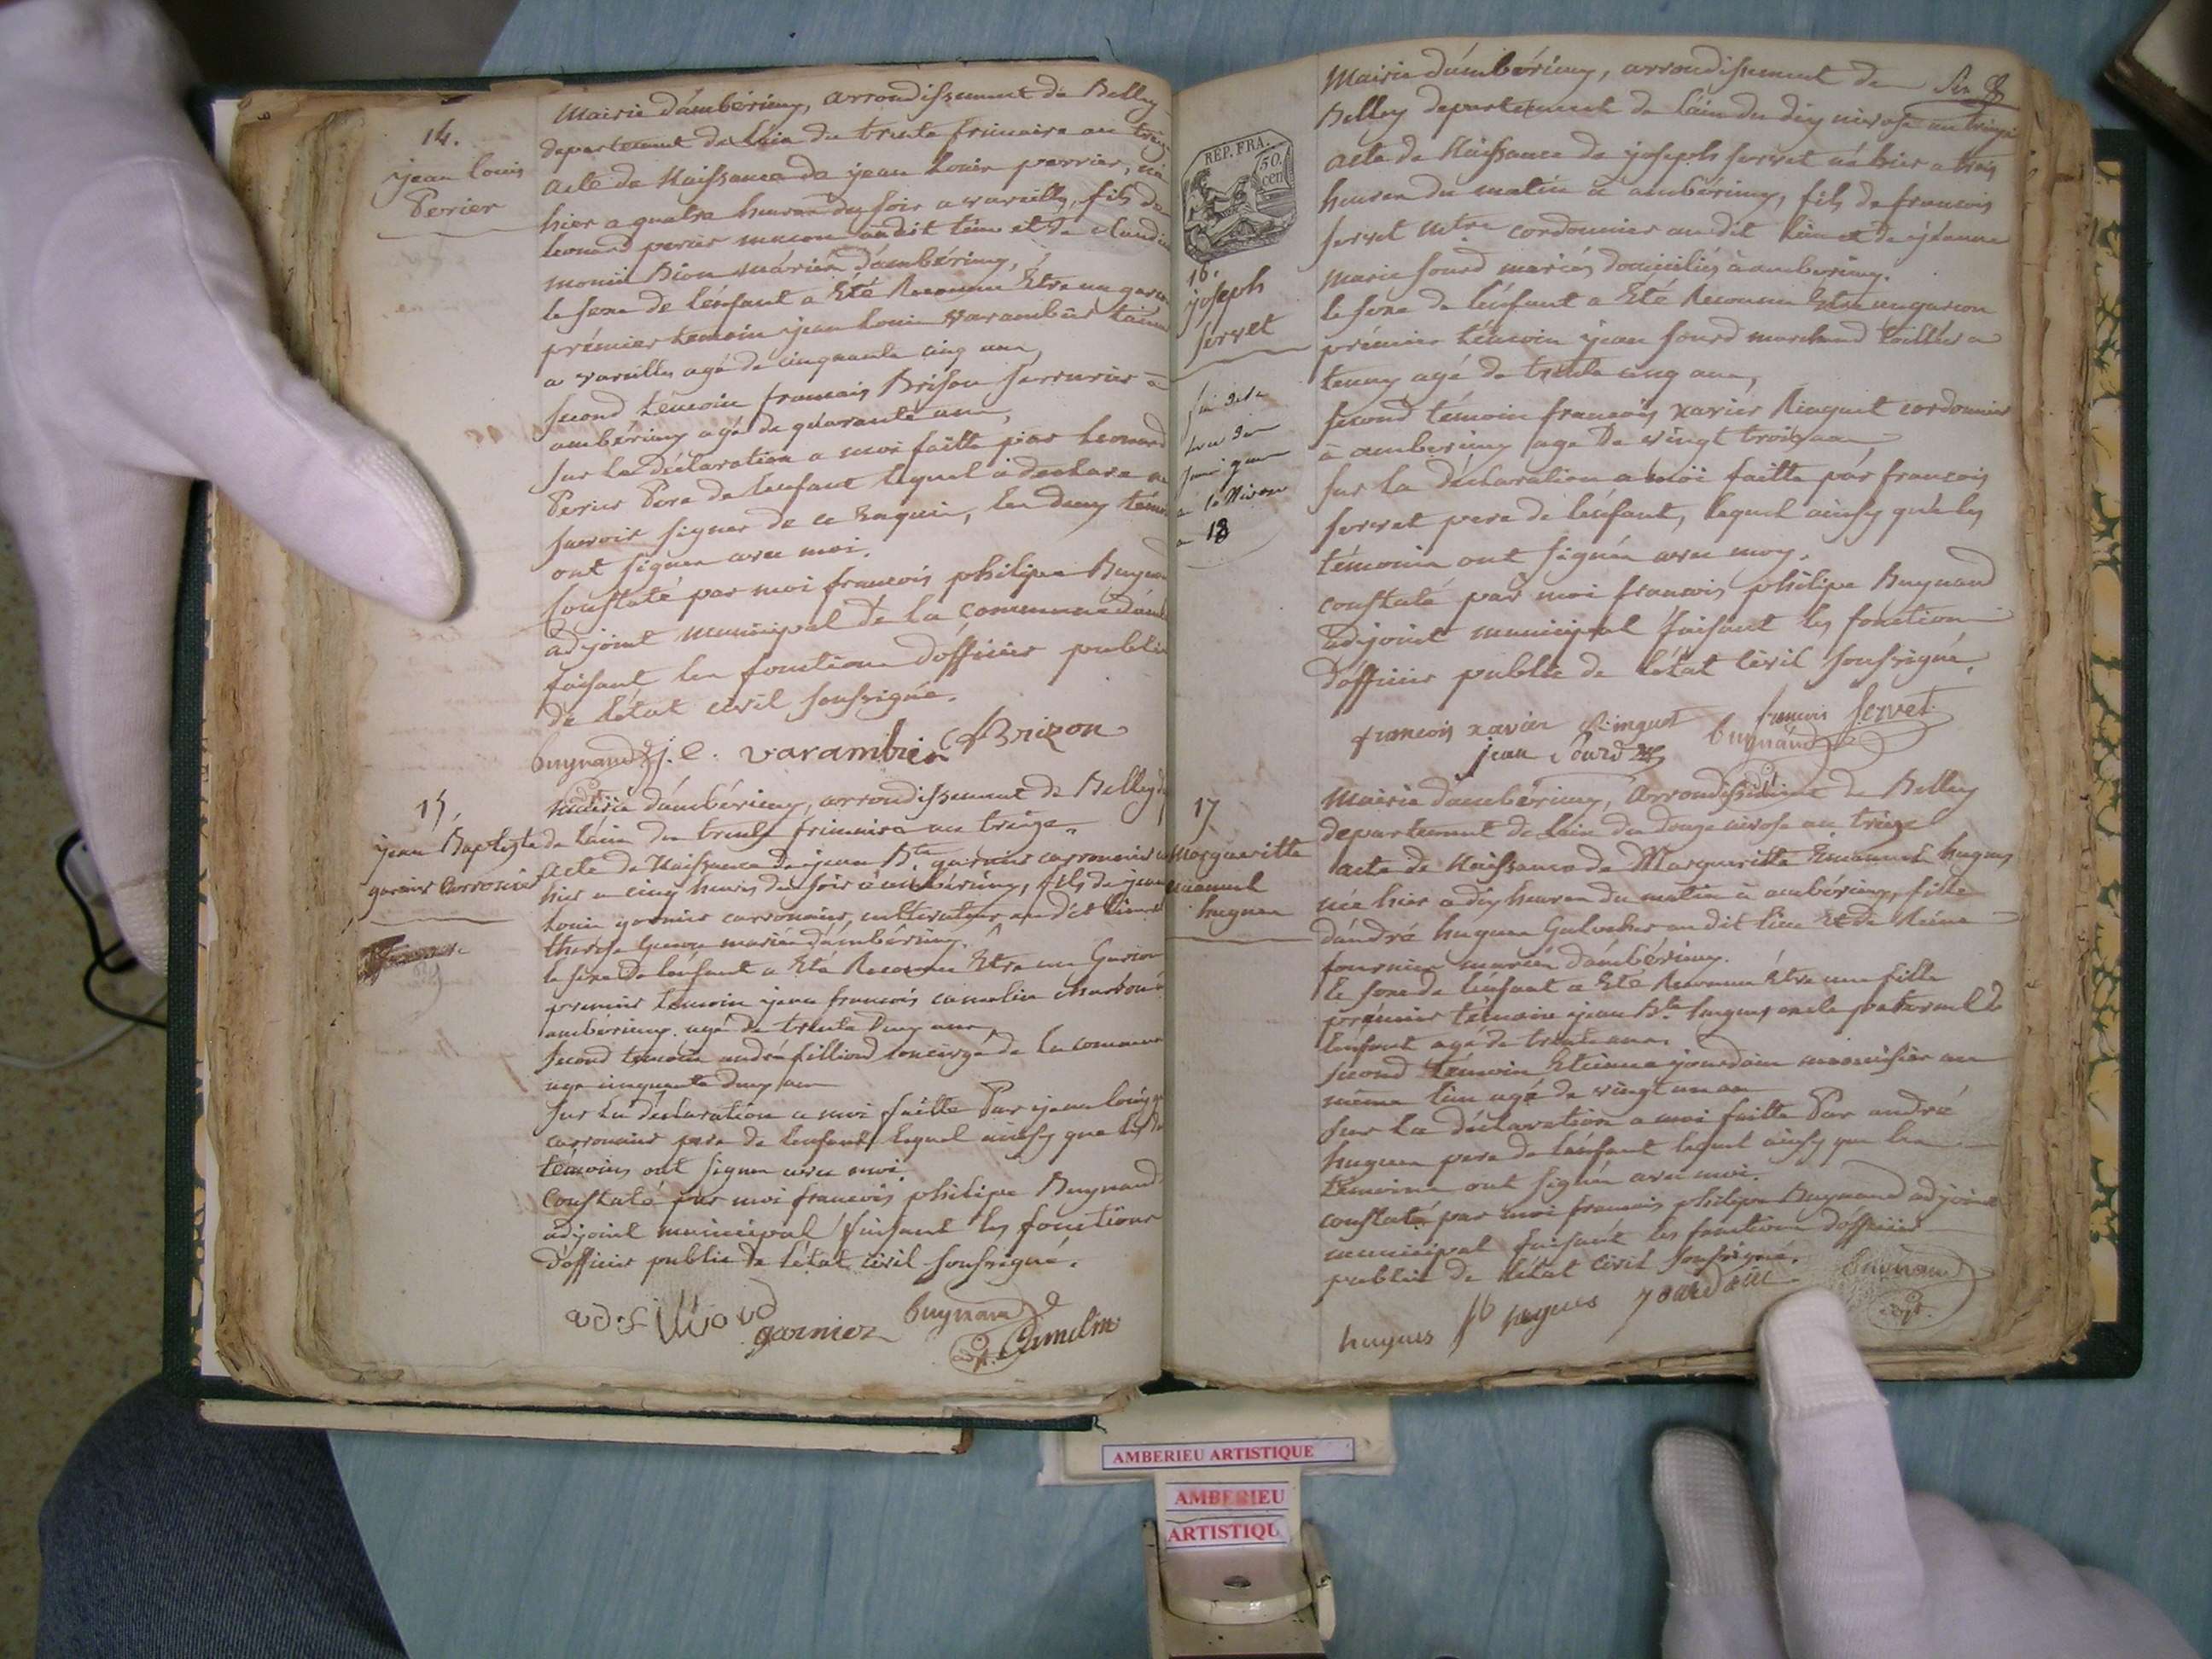 14.
jean Louis
Perier
Mairie d'ambérieux, arrondissement de Belley
departement de l'ain du trente frimaire an treize
acte de Naissance de jean Louis perrier, né
hier a quatre heures du soir a vareilles, fils de
leonard perier macon audit lieu et de claudine
Dion mariés d'ambérieux,
le sexe de l'enfant a Eté Reconnu Etre un garcon
prémier temoin jean Louis varambier
a vareilles agé de cinquante cinq ans,
second témoin francois Brison serrurier a
ambérieux agé de quarante ans,
sur la déclaration a moi faitte par Leonard
Perier Pere de lenfant lequel a declaré ne
savoir signer de ce Enquis, les deux témoins
ont signés avec moi.
Constaté par moi francois philipe Buynand
adjoint municipal de la commune d'amb
faisant les fonctions d'officier public
de létat civil soussigné.
buynand j. l. varambier f Brizon
15.
jean Baptiste
garnier Carronier
mairie d'ambérieux, arrondissement de Belley d
de l'ain du trente frimaire an treize,
acte de Naissance de jean Bte garnier carronier né
hier a cinq heures du soir a ambérieux, fils de jean
Louis garnier carronier, cultivateur audit lieu et
therese mariés d'ambérieux.
le sexe de lénfant a Eté Reconnu Etre un Garcon
premier témoin jean francois camelin
ambérieux agé de trente deux ans,
second temoin andré filliod concierge de la commune
age cinquante deux ans
sur la déclaration a moi faitte Par jean louis g
carronier pere de lenfant, lequel ainsy que les d
témoins ont signés avec moi
Constaté par moi francois philipe Buynand
adjoint municipal faisant les fonctions
d'officier public de l'état civil soussigné.
ad filliod garnier buynand Camelin
adjt.
six
REP. FRA.
50
cen
16.
joseph
servet
18
Mairie d'ambérieux, arrondissement de
Belley departement de l'ain du dix nivose an treize
acte de Naissance de joseph servet né hier a trois
heures du matin a ambérieux, fils de francois
servet mtre cordonnier audit lieu et de jéanne
marie sourd mariés domiciliés a ambérieux.
le sexe de lénfant a Eté Reconnu Etre un garcon
prémier témoin jean sourd marchand tailleur a
tenay agé de trente cinq ans,
second témoin francois xavier Ringuet cordonnier
à ambérieux age de vingt trois ans
sur la déclaration a moi faitte par francois
servet pere de lénfant, lequel ainsy que les
témoins ont signés avec moy.
constaté par moi francois philipe Buynand
adjoint municipal faisant les fonctions
d'officier public de létat civil soussigné.
francois xavier Ringuet francois servet
jean sourd buynand
17
Margueritte
Emanuel
hugues
Mairie d'ambérieux, arrondissement de Belley
departement de l'ain du douze nivose an treize
acte de Naissance de Margueritte Emanuel hugues
née hier a dix heures du matin à ambérieux, fille
d'andré hugues audit lieu Et de Réine
fournier mariés d'ambérieux.
le sexe de lénfant a Eté Reconnu Etre une fille
prémier témoin jean Bte hugues oncle paternel de
lénfant agé de trente ans
second témoin Etienne jourdain menuisier au
même lieu agé de vingt un an
sur la déclaration a moi faitte Par andré
hugues pere de lénfant lequel ainsy que les
témoins ont signés avec moi.
constaté par moi francois philipe Buynand adjoint
municipal faisant les fonctions d'officier
public de létat civil soussigné.
hugues jb hugues jourdain buynand
adjt.
AMBERIEU ARTISTIQUE
AMBERIEU
ARTISTIQU